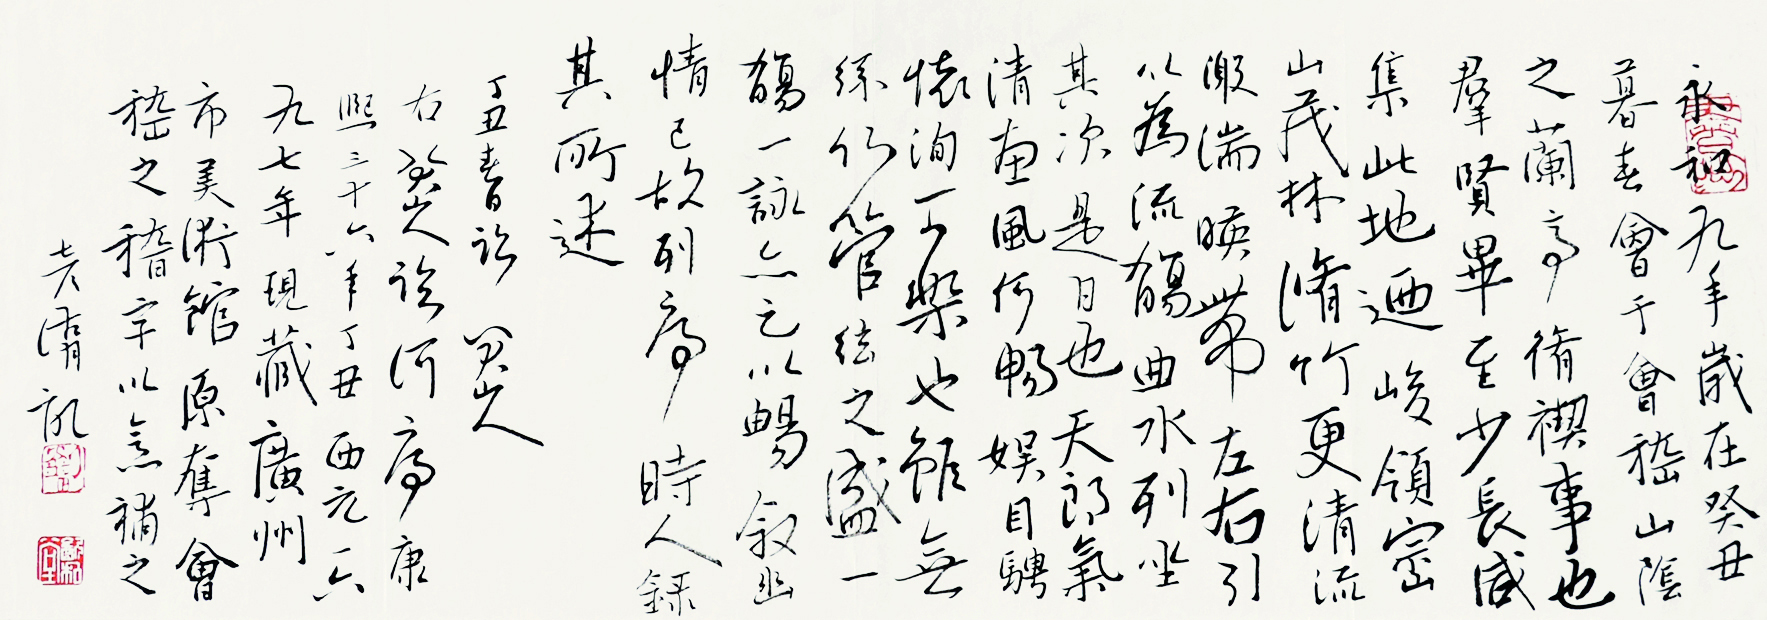 永和九年歲在癸丑
暮春會于會嵇山陰
之蘭亭脩禊事也
羣賢畢至少長咸
集此地迺峻領崇
山茂林脩竹更清流
激湍暎帶左右引
以為流觴曲水列坐
其次是日也天朗氣
清惠風和暢娛目騁
懷洵可樂也雖無
絲竹管絃之盛一
觴一詠亦足以暢敘幽
情已故列序時人録
其所述
丁丑春日 八大山人
右八大山人臨河序康
熙三十六年丁丑西元一六
九七年現藏廣州
市美術館原奪會
嵇之稽字以意補之
老 記